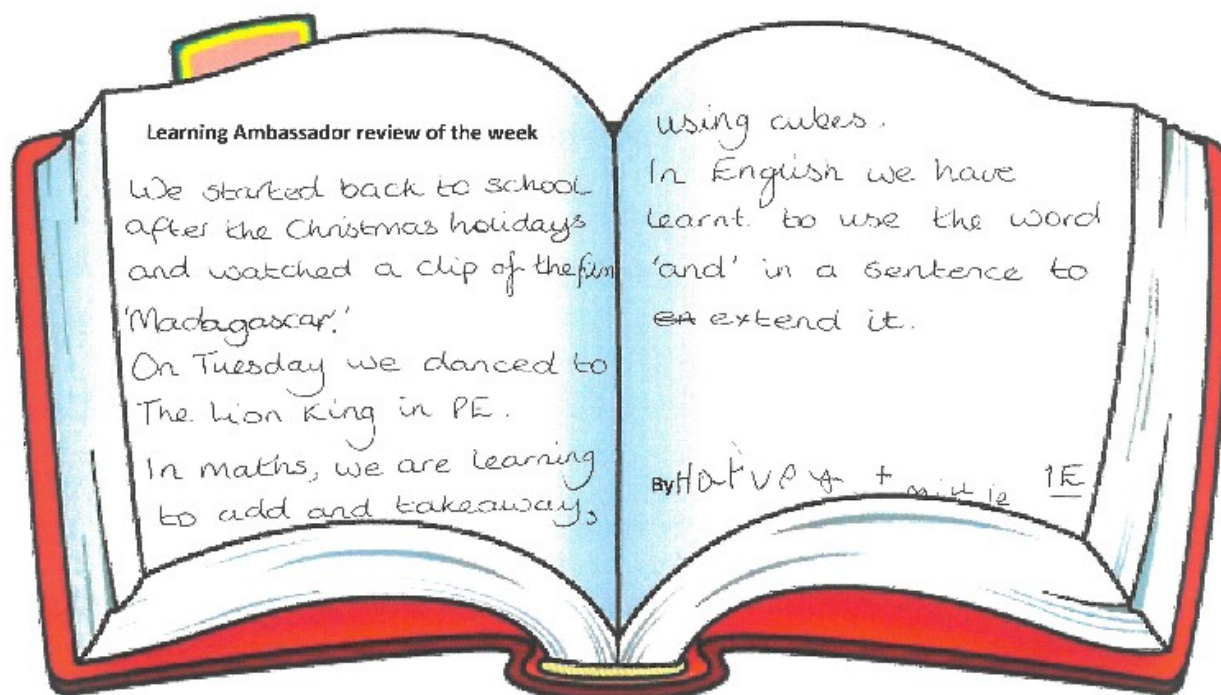 Learning Ambassador review of the week
We started back to school
after the Christmas holidays
and watched a clip of the film
'Madagascar.'
On Tuesday we danced to
The Lion King in PE.
In maths, we are learning
to add and takeaway,
using cubes.
In English we have
learnt. to use the word
'and' in a sentence to
extend it.
By Harvey + 1E